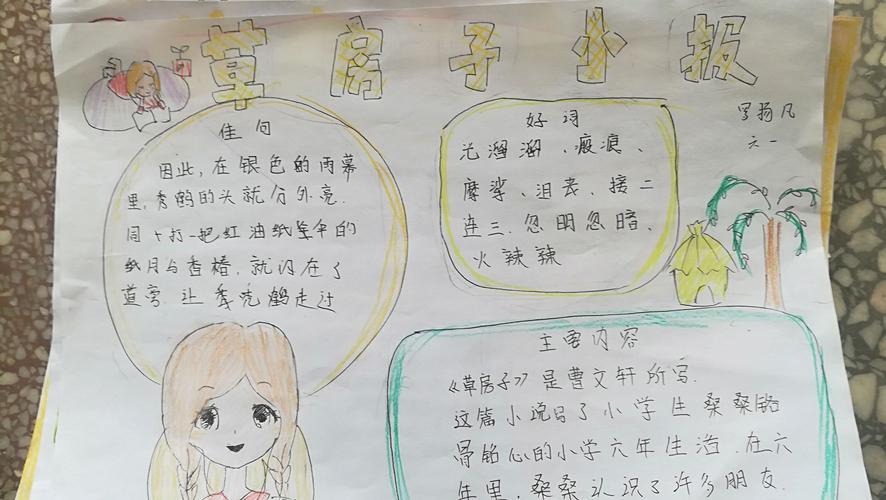 草房子小报
罗扬凡
六一
佳句
因此,在银色的雨幕
里,秃鹤的头就分外亮.
同打一把红油纸伞的
纸月与香椿,就闪在了
道旁,让秃鹤走过
好词
光溜溜、瘢痕、
摩挲、沮丧、接二
连三、忽明忽暗、
火辣辣
主要内容
《草房子》是曹文轩所写.
这篇小说写了小学生桑桑铭
骨铭心的小学六年生活.在六
年里,桑桑认识了许多朋友.